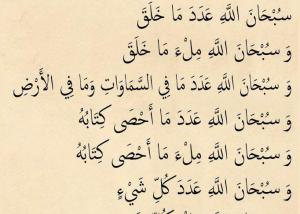 سُبْحَانَ اللَّهِ عَدَدَ مَا خَلَقَ
وَ سُبْحَانَ اللَّهِ مِلْءَ مَا خَلَقَ
وَ سُبْحَانَ اللَّهِ عَدَدَ مَا فِي السَّمَاوَاتِ وَمَا فِي الأَرْضِ
وَ سُبْحَانَ اللَّهِ عَدَدَ مَا أَحْصَى كِتَابُهُ
وَ سُبْحَانَ اللَّهِ مِلْءَ مَا أَحْصَى كِتَابُهُ
وَ سُبْحَانَ اللَّهِ عَدَدَ كُلِّ شَيْءٍ